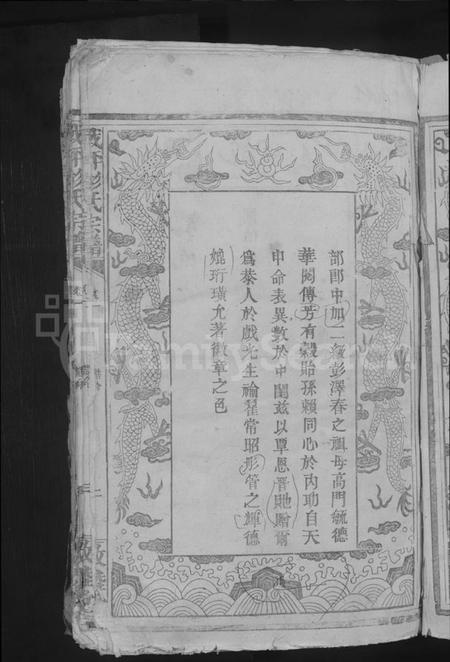 部郎中加二級彭澤春之祖母高門毓德
華閥傳芳有穀貽孫賴同心於内助自天
申命表異數於中閨兹以覃恩晋貤贈爾
爲恭人於戲光生褕翟常昭彤管之輝德
媲珩璜允著徽章之色
彭氏宗譜
FamilySearch